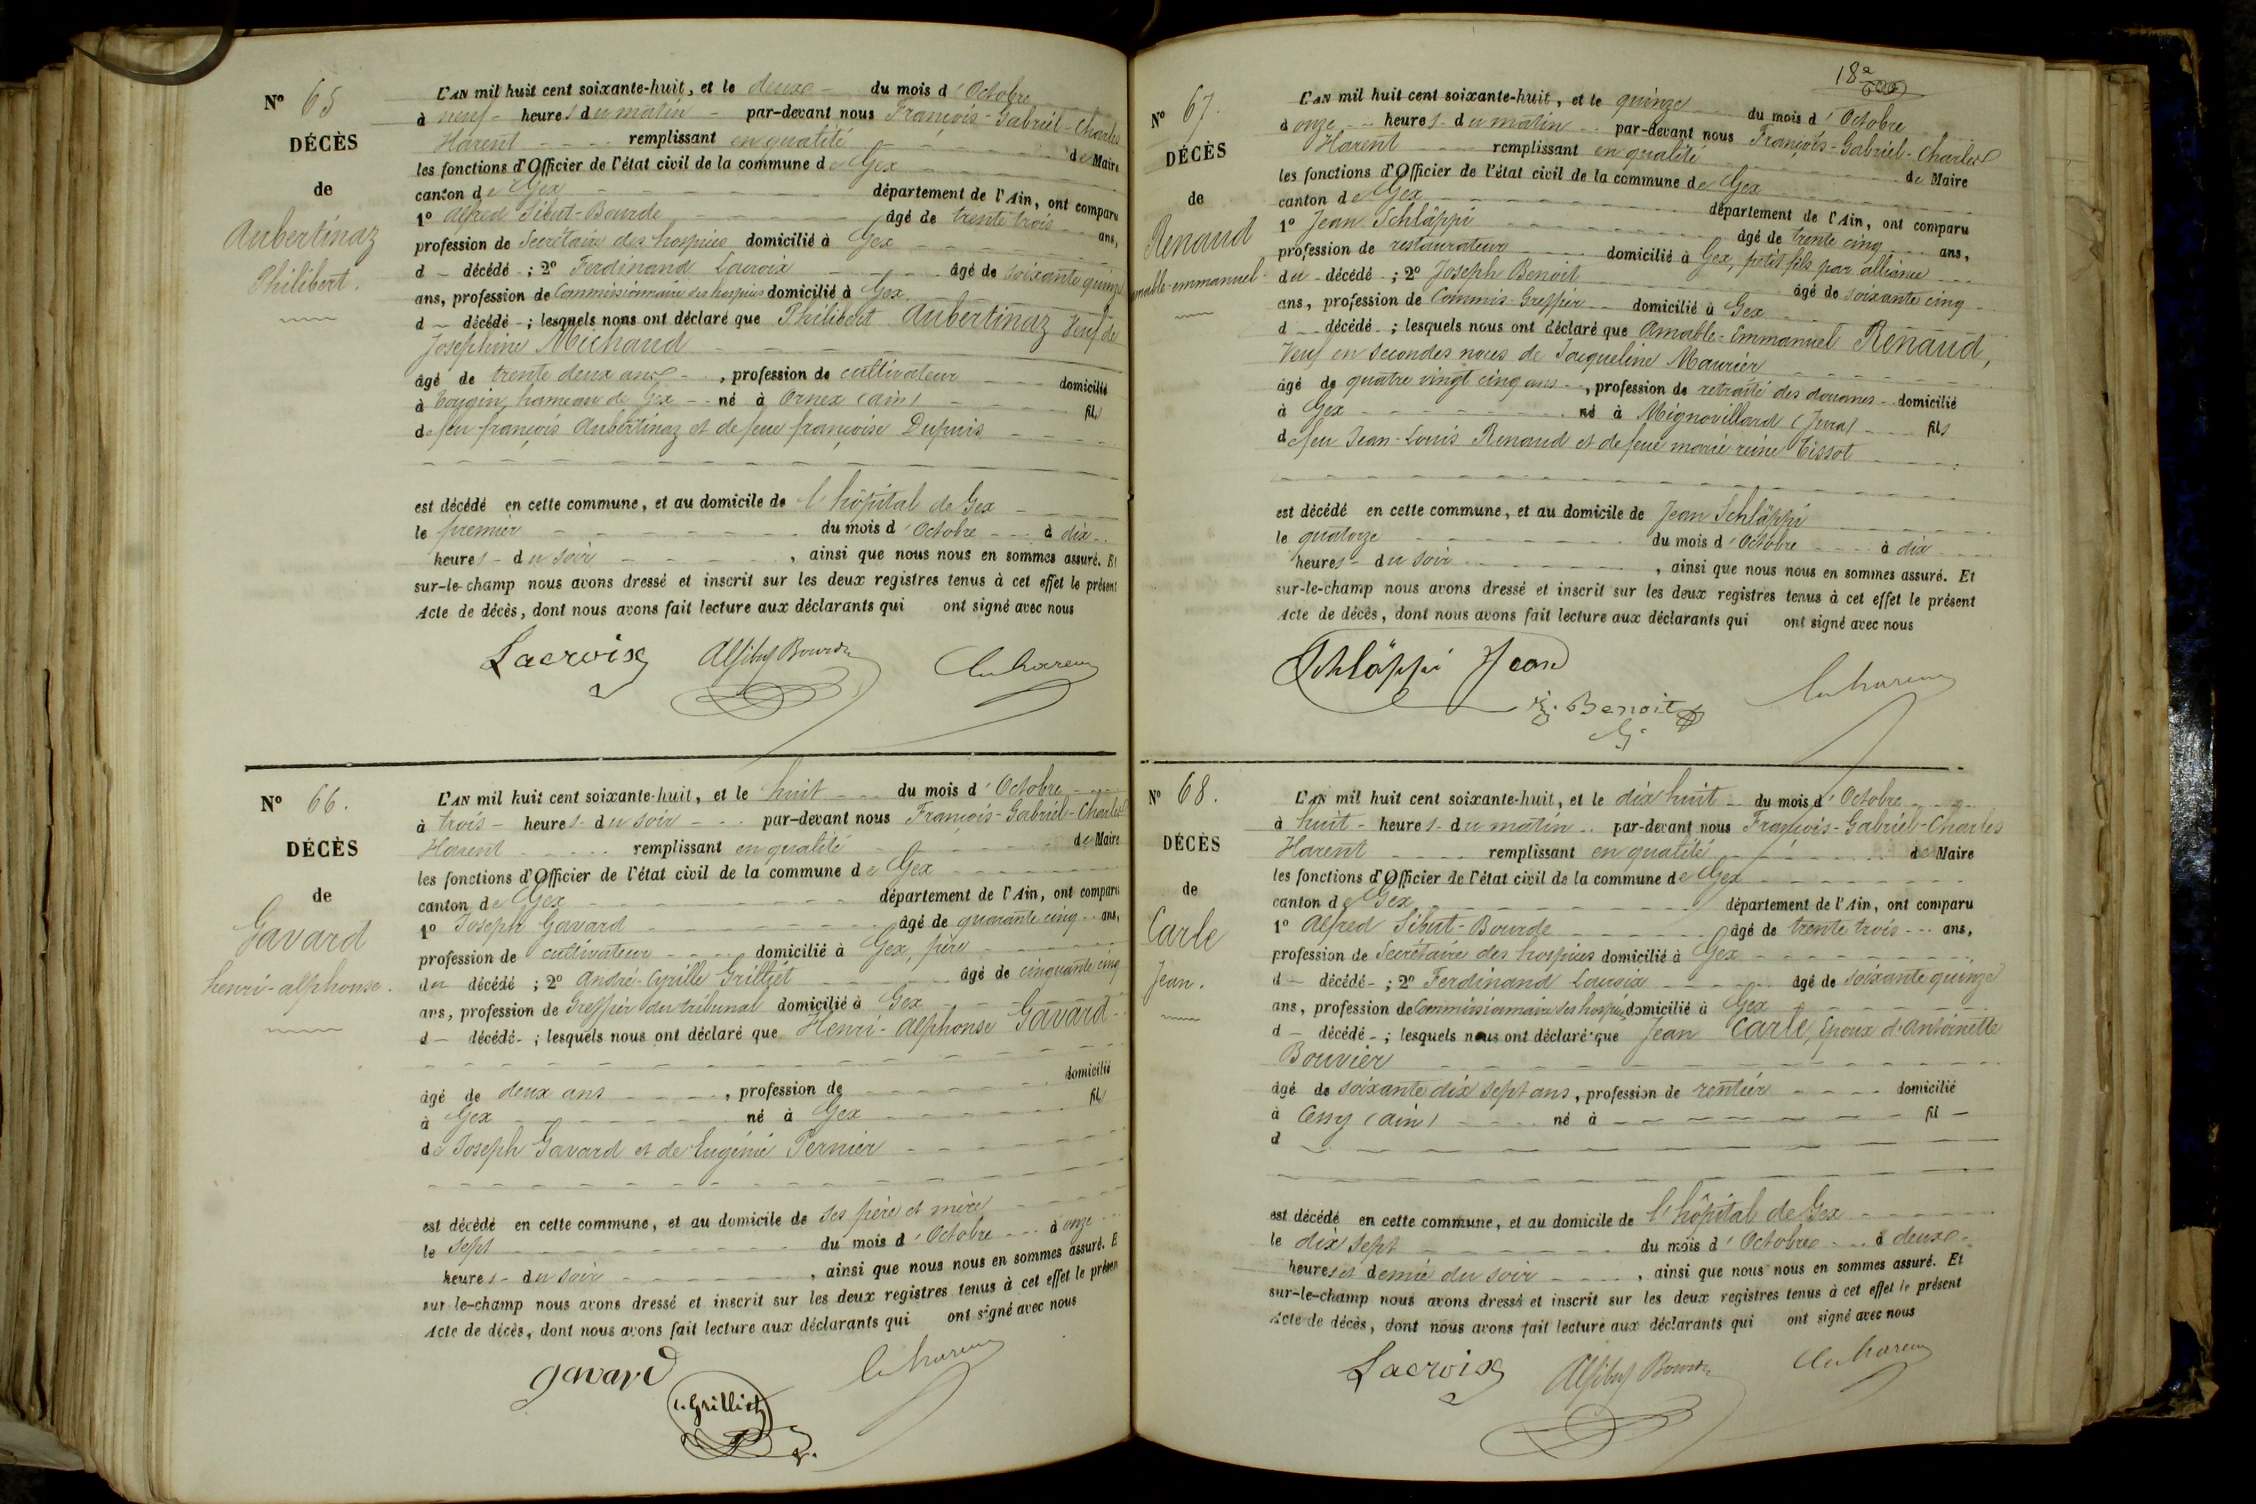 Nº 65
DÉCÈS
de
Aubertinaz
Philibert.
L'AN mil huit cent soixante-huit, et le deux du mois d'Octobre
à neuf heures du matin par-devant nous François-Gabriel-Charles
Harent remplissant en qualité de Maire
les fonctions d'Officier de l'état civil de la commune de Gex
canton de Gex département de l'Ain, ont comparu
1º Alfred Sibut-Bourde âgé de trente trois ans,
profession de Secrétaire des hospices domicilié à Gex
d décédé ; 2º Ferdinand Lacroix âgé de soixante quinze
ans, profession de Commissionnaire des hospices domicilié à Gex
d décédé ; lesquels nous ont déclaré que Philibert Aubertinaz Veuf de
Josephine Michaud
âgé de trente deux ans , profession de cultivateur domicilié
à Tougin, hameau de Gex né à Ornex (ain) fils
de feu françois Aubertinaz et de feue françoise Dupuis
est décédé en cette commune, et au domicile de l'hôpital de Gex
le premier du mois d'Octobre à dix
heures du soir , ainsi que nous nous en sommes assuré. Et
sur-le-champ nous avons dressé et inscrit sur les deux registres tenus à cet effet le présent
Acte de décès, dont nous avons fait lecture aux déclarants qui ont signé avec nous
Lacroix Alf Sibut Bourde Ch harent
Nº 66.
DÉCÈS
de
Gavard
henri-alphonse.
L'AN mil huit cent soixante-huit, et le huit du mois d'Octobre
à trois heures du soir par-devant nous François-Gabriel-Charles
Harent remplissant en qualité de Maire
les fonctions d'Officier de l'état civil de la commune de Gex
canton de Gex département de l'Ain, ont comparu
1º Joseph Gavard âgé de quarante cinq ans,
profession de cultivateur domicilié à Gex, père
du décédé ; 2º André-Cyrille Grilliet âgé de cinquante cinq
ans, profession de Greffier du tribunal domicilié à Gex
d décédé ; lesquels nous ont déclaré que Henri-Alphonse Gavard
âgé de deux ans , profession de domicilié
à Gex né à Gex fils
de Joseph Gavard et de Eugénie Pernier
est décédé en cette commune, et au domicile de ses père et mère
le sept du mois d'Octobre à onze
heures du soir , ainsi que nous nous en sommes assuré. E
sur-le-champ nous avons dressé et inscrit sur les deux registres tenus à cet effet le présen
Acte de décès, dont nous avons fait lecture aux déclarants qui ont signé avec nous
gavard C. Grilliet Ch harent
18e
Nº 67.
DÉCÈS
de
Renaud
amable-emmanuel.
L'AN mil huit cent soixante-huit, et le quinze du mois d'Octobre
à onze heures du matin par-devant nous François-Gabriel-Charles
Harent remplissant en qualité de Maire
les fonctions d'Officier de l'état civil de la commune de Gex
canton de Gex département de l'Ain, ont comparu
1º Jean Schläppi âgé de trente cinq ans,
profession de restaurateur domicilié à Gex, petit fils par alliance
du décédé ; 2º Joseph Benoit âgé de soixante cinq
ans, profession de Commis-Greffier domicilié à Gex
d décédé ; lesquels nous ont déclaré que Amable-Emmanuel Renaud,
Veuf en secondes noces de Jacqueline Maurier
âgé de quatre vingt cinq ans , profession de retraité des douanes domicilié
à Gex né à Mignovillard (Jura) fils
de feu Jean-Louis Renaud et de feue marie reine Tissot
est décédé en cette commune, et au domicile de Jean Schläppi
le quatorze du mois d'Octobre à dix
heures du soir , ainsi que nous nous en sommes assuré. Et
sur-le-champ nous avons dressé et inscrit sur les deux registres tenus à cet effet le présent
Acte de décès, dont nous avons fait lecture aux déclarants qui ont signé avec nous
Schläppi Jean
J. Benoit Ch harent
Nº 68.
DÉCÈS
de
Carle
Jean.
L'AN mil huit cent soixante-huit, et le dix huit du mois d'Octobre
à huit heures du matin par-devant nous François-Gabriel-Charles
Harent remplissant en qualité de Maire
les fonctions d'Officier de l'état civil de la commune de Gex
canton de Gex département de l'Ain, ont comparu
1º Alfred Sibut-Bourde âgé de trente trois ans,
profession de Secrétaire des hospices domicilié à Gex
d décédé ; 2º Ferdinand Lacroix âgé de soixante quinze
ans, profession de Commissionnaire des hospices domicilié à Gex
d décédé ; lesquels nous ont déclaré que Jean Carle, Epoux d'Antoinette
Bouvier
âgé de soixante dix sept ans, profession de rentier domicilié
à Cessy (ain) né à fil
d
est décédé en cette commune, et au domicile de l'hôpital de Gex
le dix sept du mois d'Octobre à deux
heures et demie du soir , ainsi que nous nous en sommes assuré. Et
sur-le-champ nous avons dressé et inscrit sur les deux registres tenus à cet effet le présent
Acte de décès, dont nous avons fait lecture aux déclarants qui ont signé avec nous
Lacroix Alf Sibut Bourde Ch harent